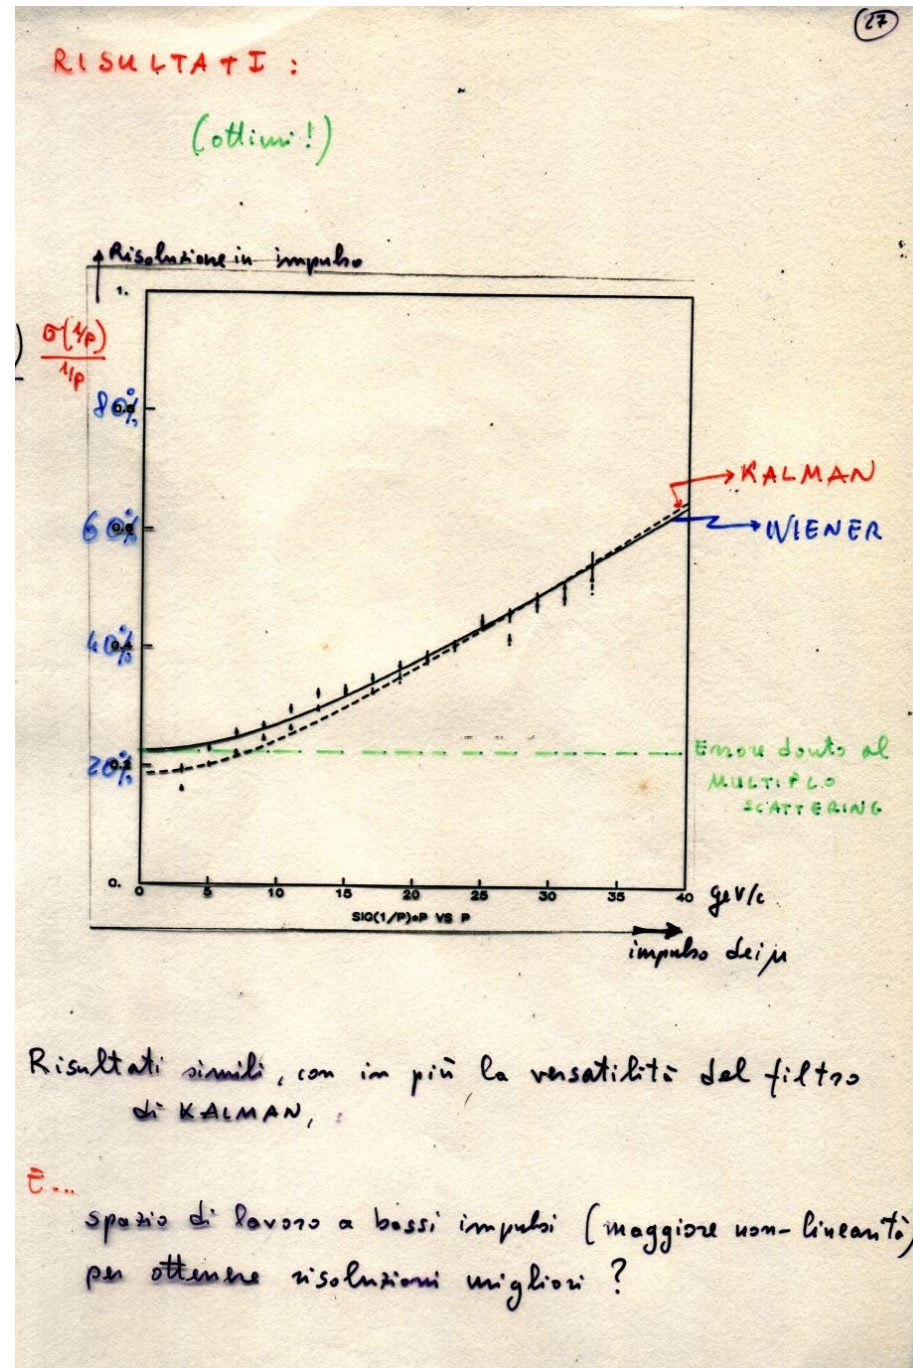 27
RISULTATI :
(ottimi!)
Risoluzione in impulso
1.
σ(1/p)
1/p
80%
60%
40%
20%
0.
KALMAN
WIENER
Errore dovuto al
MULTIPLO
SCATTERING
0 5 10 15 20 25 30 35 40 geV/c
SIG(1/P)*P VS P
impulso dei μ
Risultati simili, con in più la versatilità del filtro
di KALMAN,
E...
spazio di lavoro a bassi impulsi (maggiore non-linearità)
per ottenere risoluzioni migliori ?